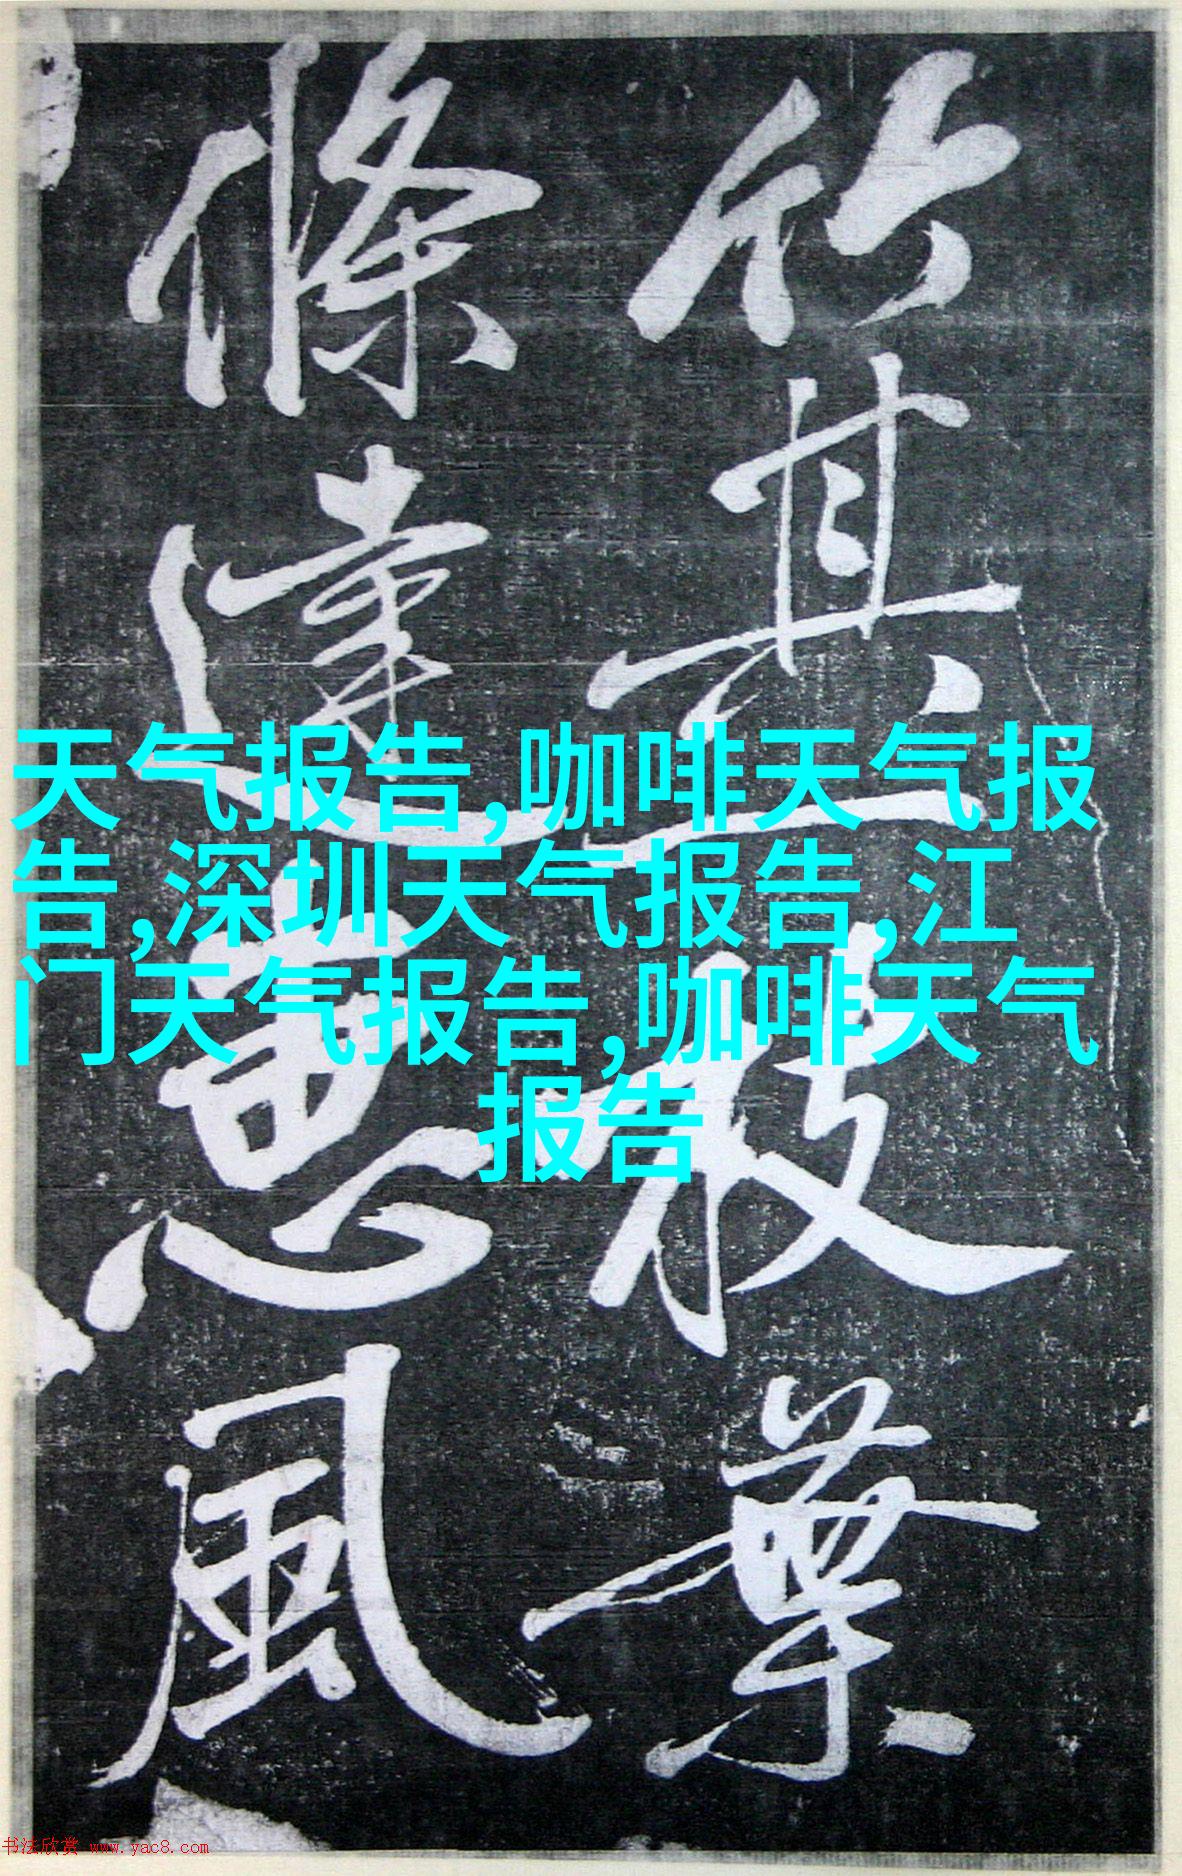 竹其枝葉
條達惠風
天气报告,咖啡天气报
告,深圳天气报告,江
门天气报告,咖啡天气
报告
书法欣赏 www.yac8.com